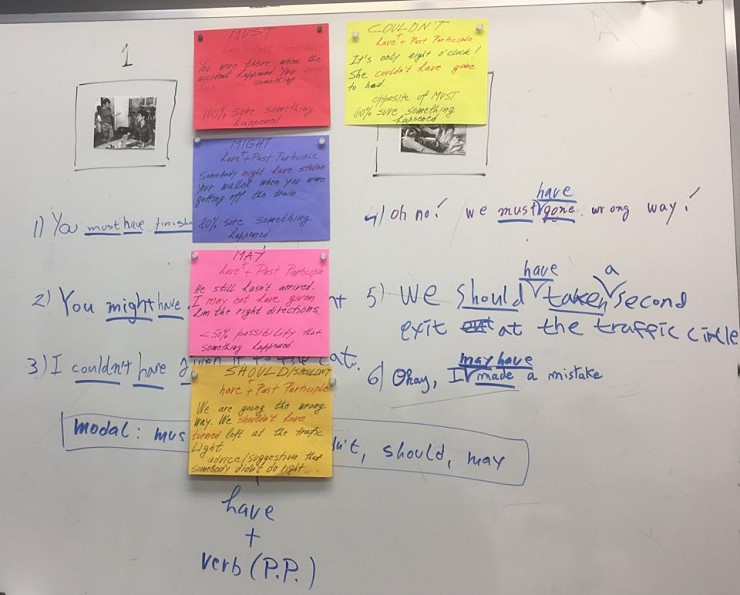 1
MUST
have + Past Participle
You were there when the
accident happened. You
something
100% sure something
happened
COULDN'T
have + Past Participle
It's only eight o'clock!
She couldn't have gone
to bed.
opposite of MUST
60% sure something
happened
MIGHT
have + Past Participle
Somebody might have stolen
your wallet when you were
getting off the train.
80% sure something
happened
MAY
have + Past Participle
He still hasn't arrived.
I may not have given
him the right directions.
<50% possibility that
something happened
SHOULD/SHOULDN'T
have + Past Participle
We are going the wrong
way. We shouldn't have
turned left at the trafic
Light
advice/suggestion that
somebody didn't do right...
1) You must have finish
2) You might have
3) I couldn't have to the cat.
4) Oh no! we must have gone wrong way!
5) We should have taken a second
exit out at the traffic circle
6) Okay, I may have made a mistake
modal: mus n't, should, may
have
+
verb (P.P.)